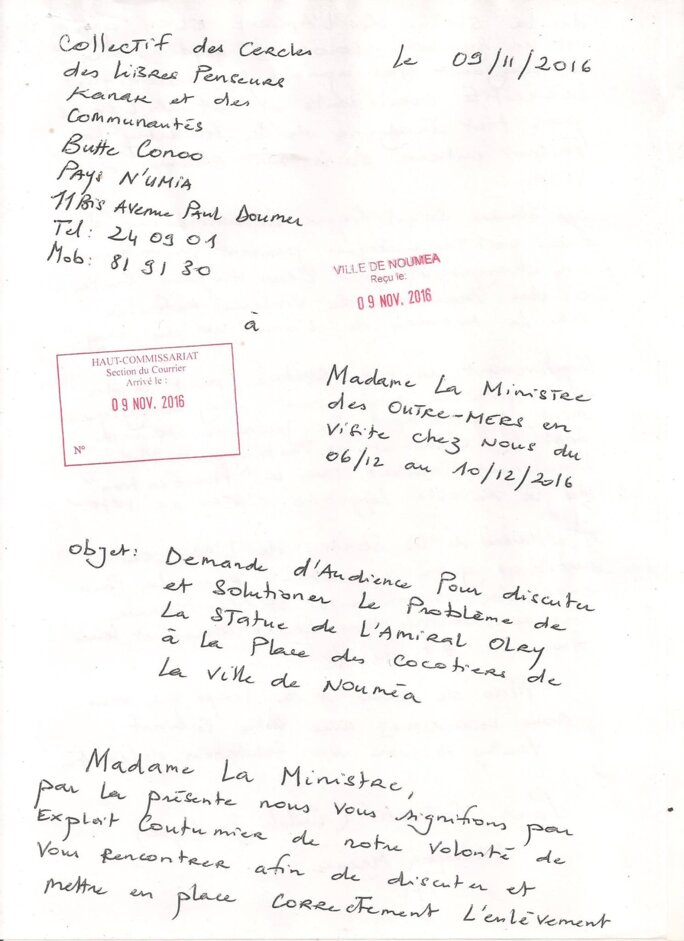 Collectif des Cercles
des Libres Penseurs
Kanak et des
Communautés
Butte Conoo
Pays N'umia
11Bis Avenue Paul Doumer
Tel: 24 09 01
Mob: 81 91 30
Le 09/11/2016
VILLE DE NOUMEA
Reçu le:
09 NOV. 2016
à
HAUT-COMMISSARIAT
Section du Courrier
Arrivé le :
09 NOV. 2016
N°
Madame La Ministre
des OUTRE-MERS en
visite chez nous du
06/12 au 10/12/2016
Objet: Demande d'Audience Pour discuter
et solutioner le Problème de
La Statue de L'Amiral Olry
à la Place des Cocotiers de
La Ville de Nouméa
Madame La Ministre,
par la présente nous vous signifions par
Exploit Coutumier de notre volonté de
vous rencontrer afin de discuter et
mettre en place correctement l'enlèvement